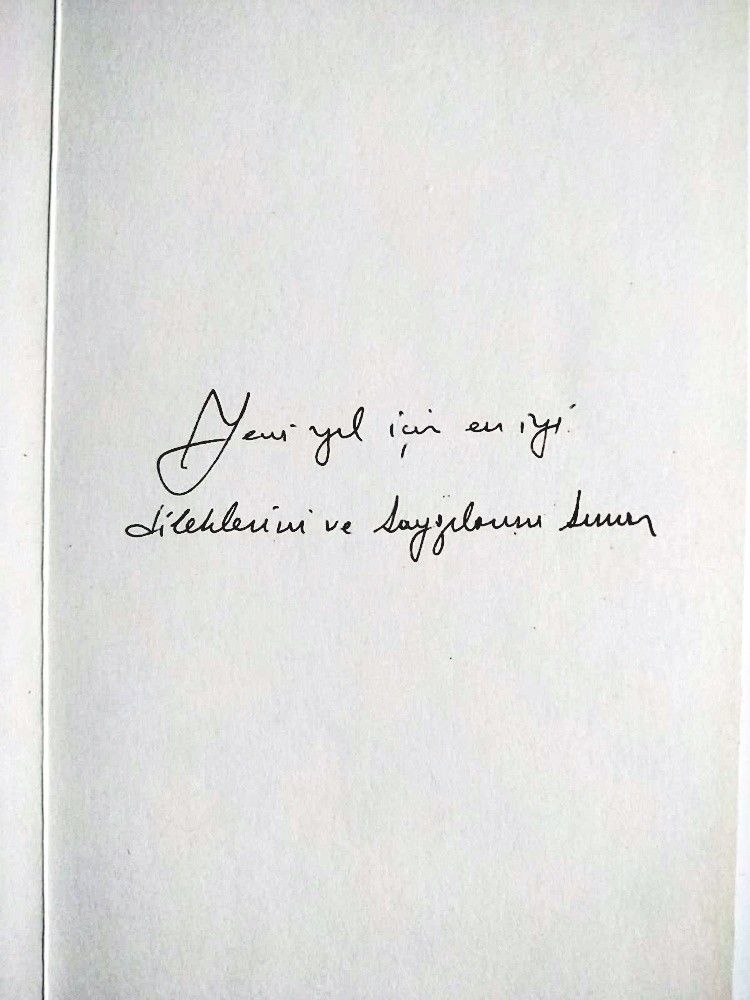 Yeni yıl için en iyi
dileklerini ve saygılarını sunar